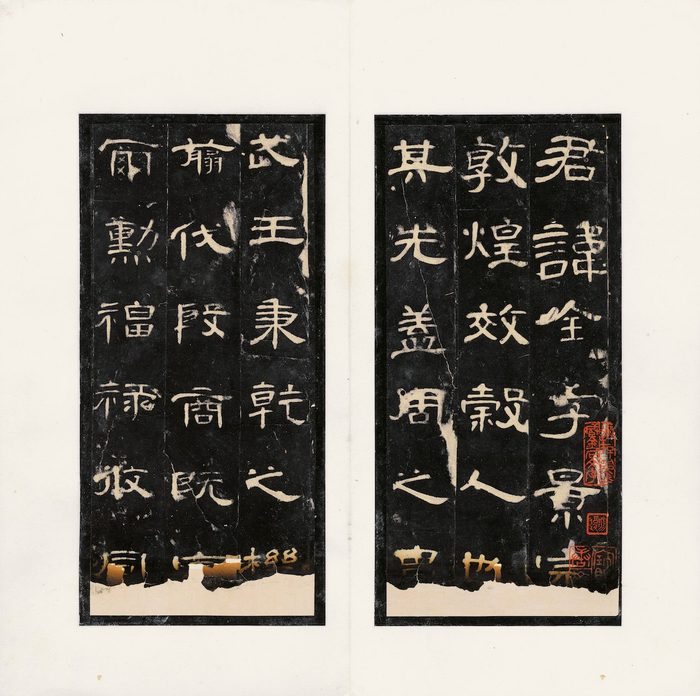 君諱全字景完
敦煌效穀人也
其先盖周之胄
武王秉乾之機
翦伐殷商既定
爾勳福祿攸同